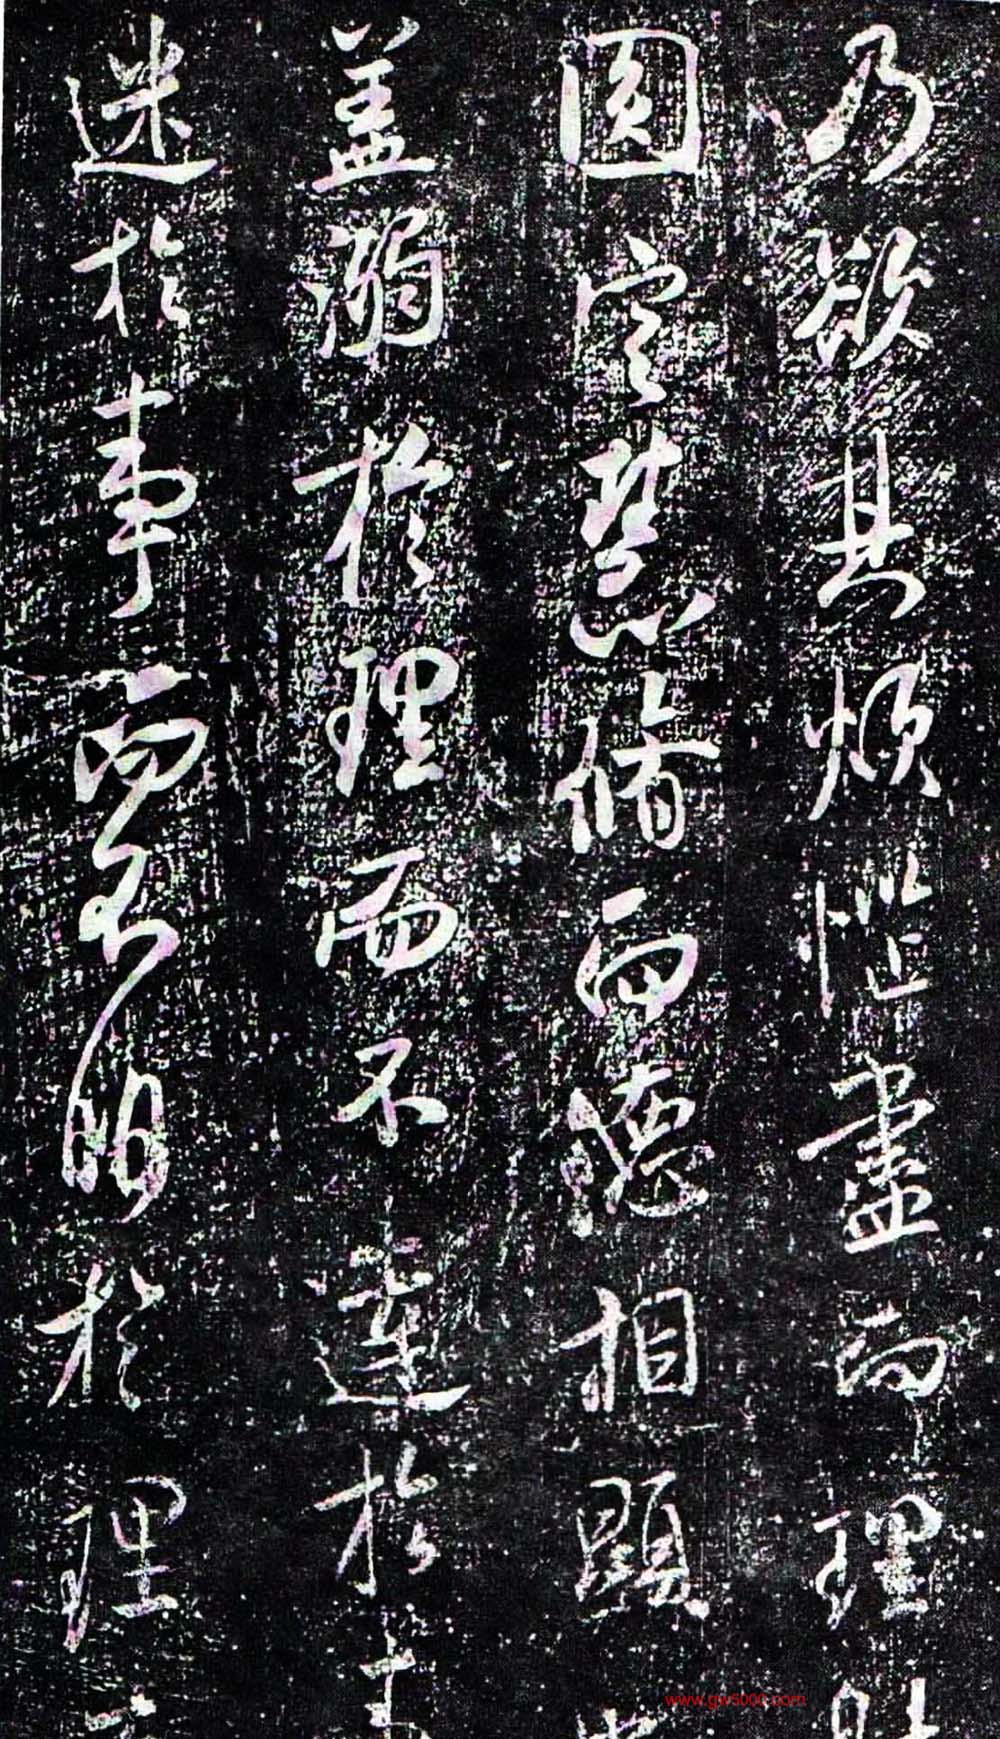 乃欲其煩惱盡而理
圓定慧脩而德相顯
盖溺於理而不達於
迷於事而不明於理
www.gw5000.com